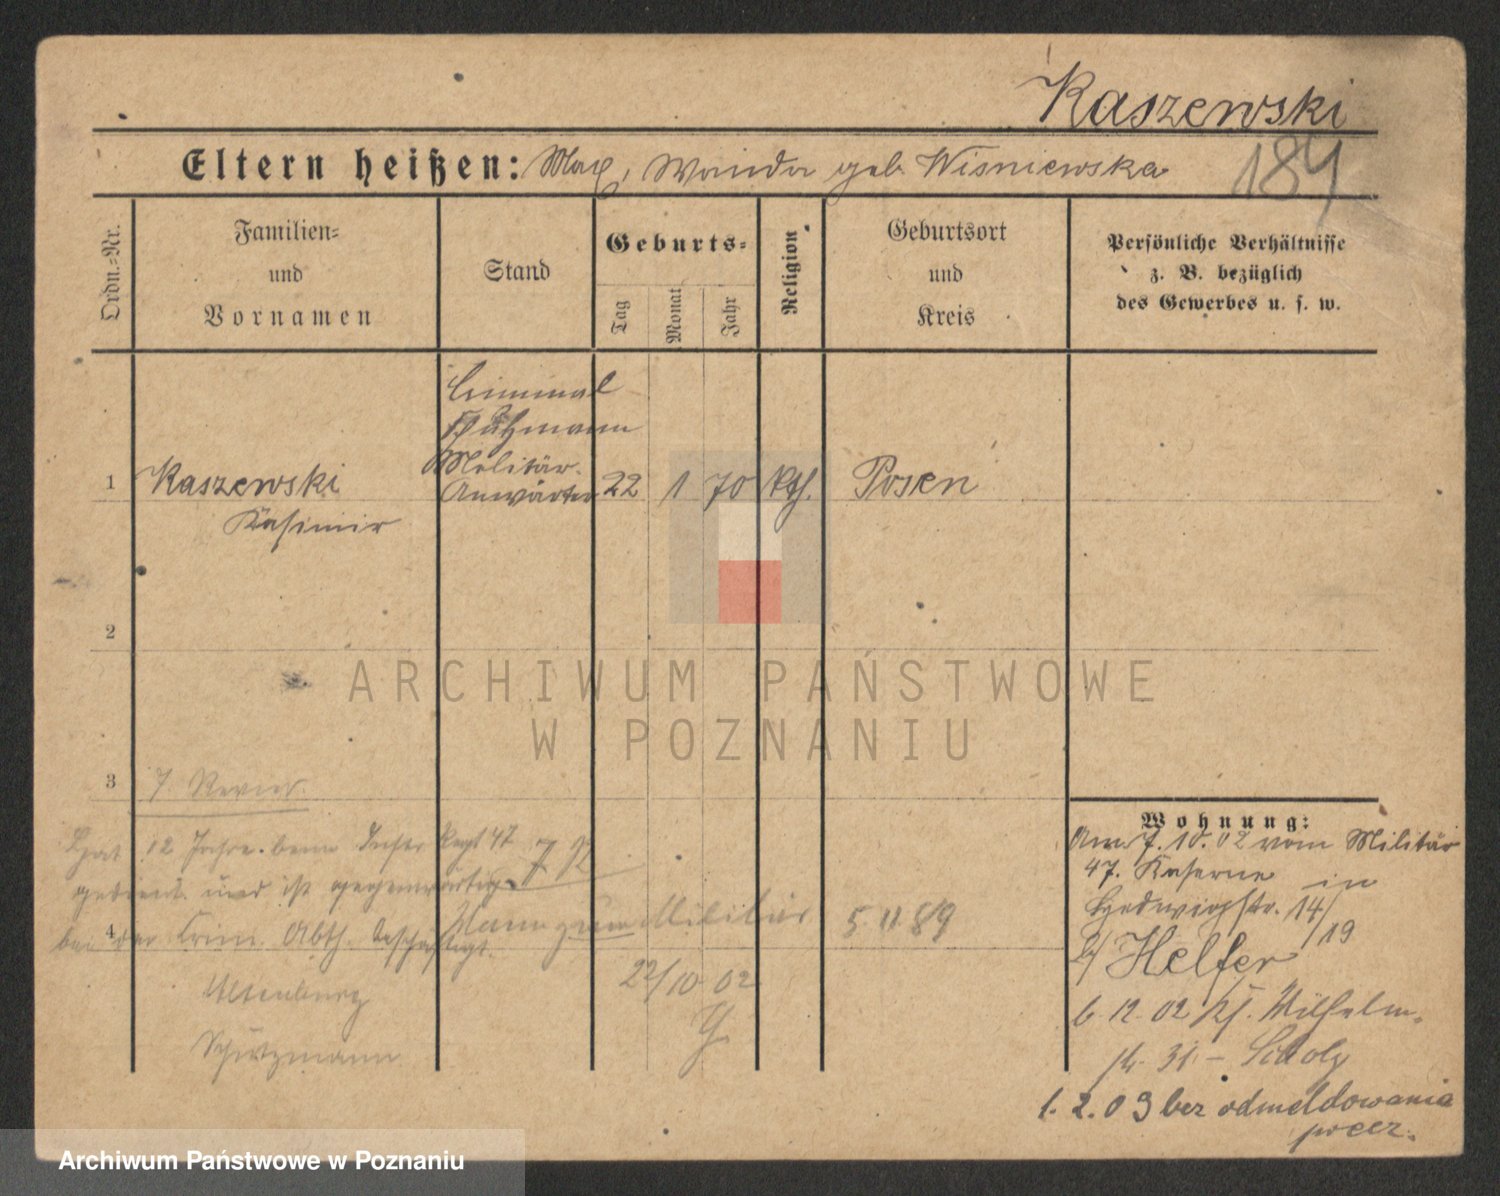 Kaszewski
Eltern heißen: Max, Wanda geb. Wisniewska
184
Ordn.=Nr.
Familien=
und
Vornamen
Stand
Geburts=
Tag
Monat
Jahr
Religion
Geburtsort
und
Kreis
Persönliche Verhältnisse
z. B. bezüglich
des Gewerbes u. s. w.
Criminal
Schutzmann
Militär-
Anwärter
1 Kaszewski 22 1 70 kth. Posen
Kasimir
2
ARCHIWUM PAŃSTWOWE
W POZNANIU
3 7. Revier.
Hat 12 Jahre beim Regt 47
gedient und ist gegenwärtig
4
bei der Crim. Abth. beschäftigt.
Altenburg
Schutzmann
zum Militär 5. 11 89
22/10 02
Wohnung:
7. 10. 02 vom Militär
47. Kaserne in
Hedwigstr. 14/
19
b/ Helfer
6. 12. 02 Wilhelm-
str. 31 –
1. 2. 03 bez odmeldowania
precz.
Archiwum Państwowe w Poznaniu